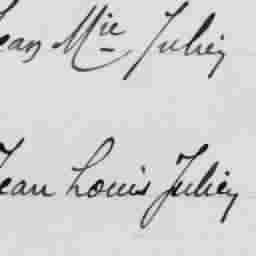 Jean Mie Julien
Jean Louis Julien